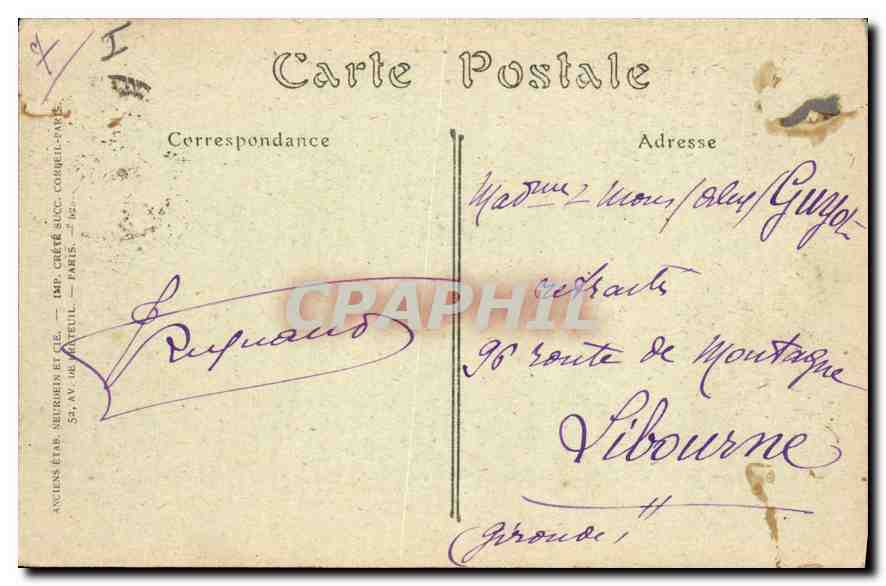 Carte Postale
Correspondance
Adresse
ANCIENS ÉTAB. NEURDEIN ET CIE. — IMP. CRÉTÉ SUCC. CORBEIL-PARIS.
52, AV. DE BRETEUIL. — PARIS. —
CPAPHIL
Guyot
retraité
96 route de Montagne
Libourne
Gironde